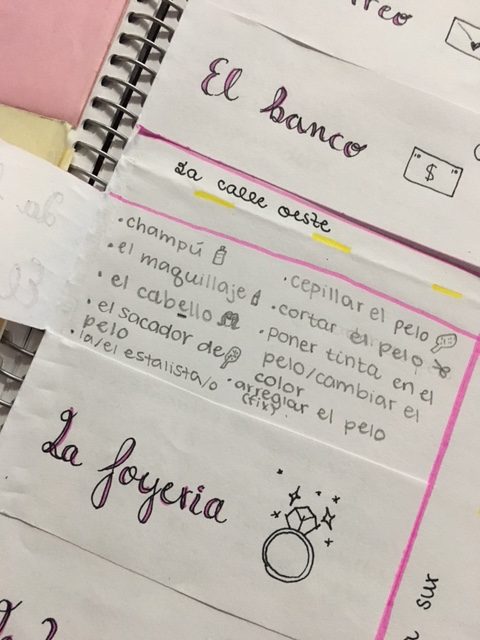 reo
El banco
"$"
La calle oeste
• champú
• el maquillaje
• el cabello
• el sacador de
pelo
• la/el estalista/o
• cepillar el pelo
• cortar el pelo
• poner tinta en el
pelo/cambiar el
color
• arreglar el pelo
(fix)
La Joyeria
sur